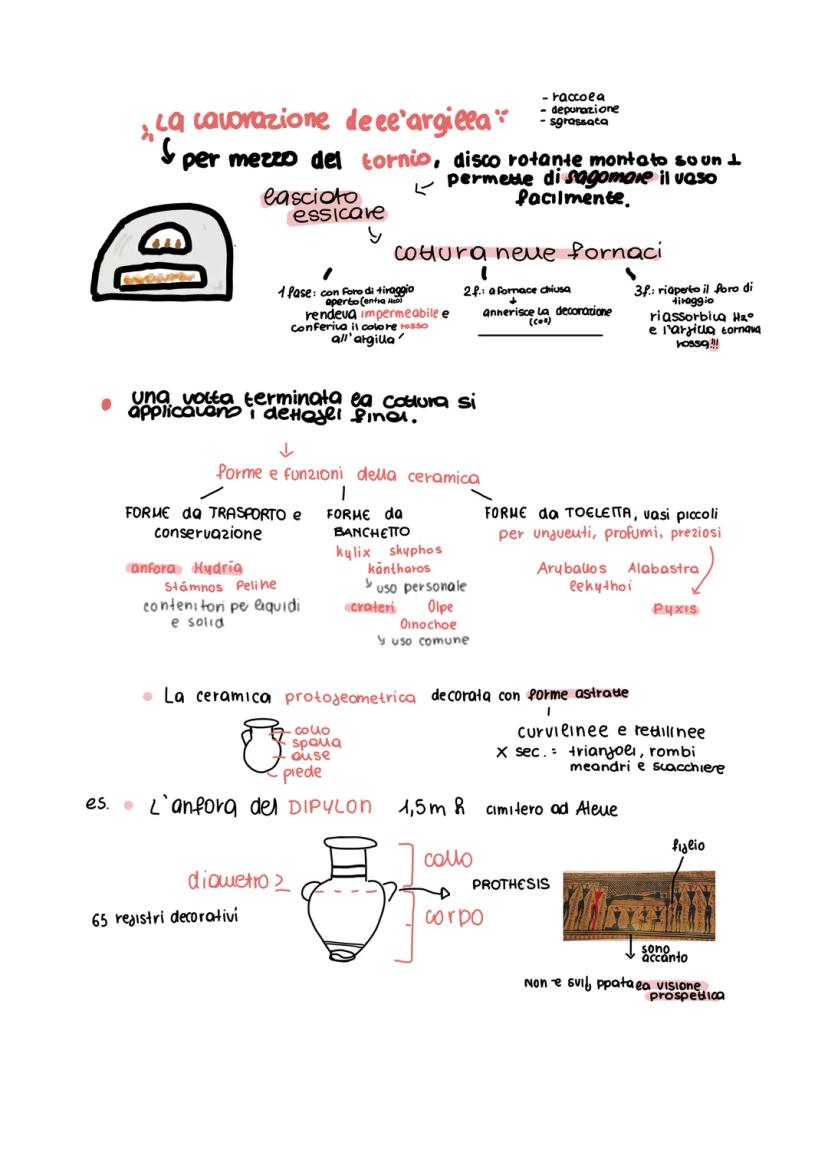 La lavorazione dell'argilla
- raccolta
- depurazione
- sgrassata
per mezzo del tornio, disco rotante montato su un ⊥
permette di sagomare il vaso
facilmente.
lasciato
essicare
cottura nelle fornaci
1 fase: con foro di tiraggio
aperto (entra H2O)
rendeva impermeabile e
conferiva il colore rosso
all'argilla
2 f.: a fornace chiusa
annerisce la decorazione
(CO2)
3 f.: riaperto il foro di
tiraggio
riassorbiva H2O
e l'argilla tornava
rossa!!!
una volta terminata la cottura si
applicavano i dettagli finai.
forme e funzioni della ceramica
FORME da TRASPORTO e
conservazione
anfora Hydria
Stámnos Pelike
contenitori pe liquidi
e solidi
FORME da
BANCHETTO
kylix skyphos
kāntharos
uso personale
crateri Olpe
Oinochoe
uso comune
FORME da TOELETTA, vasi piccoli
per unguenti, profumi, preziosi
Aryballos Alabastra
lekythoi
Pyxis
La ceramica protogeometrica decorata con forme astratte
curvilinee e rettilinee
X sec. = triangoli, rombi
meandri e scacchiere
collo
spalla
anse
piede
es. L'anfora del DIPYLON 1,5m h cimitero ad Atene
diametro ≥
65 registri decorativi
collo
corpo
PROTHESIS
figlio
sono
accanto
Non e sviluppata la visione
prospettica